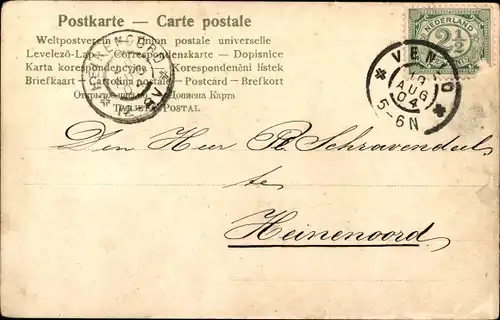 Postkarte – Carte postale
Weltpostverein Union postale universelle
Levelező-Lap – Correspondenzkarte – Dopisnice
Karta korespondencyjna Korespondenční lístek
Briefkaart – Cartolina postale – Postcard – Brefkort
Открытое письмо – Дописна Карта
TARJETA POSTAL
NEDERLAND
2½
VENLO
10 AUG 04
5-6N
Den Heer P. Schravendeels
te
Heinenoord